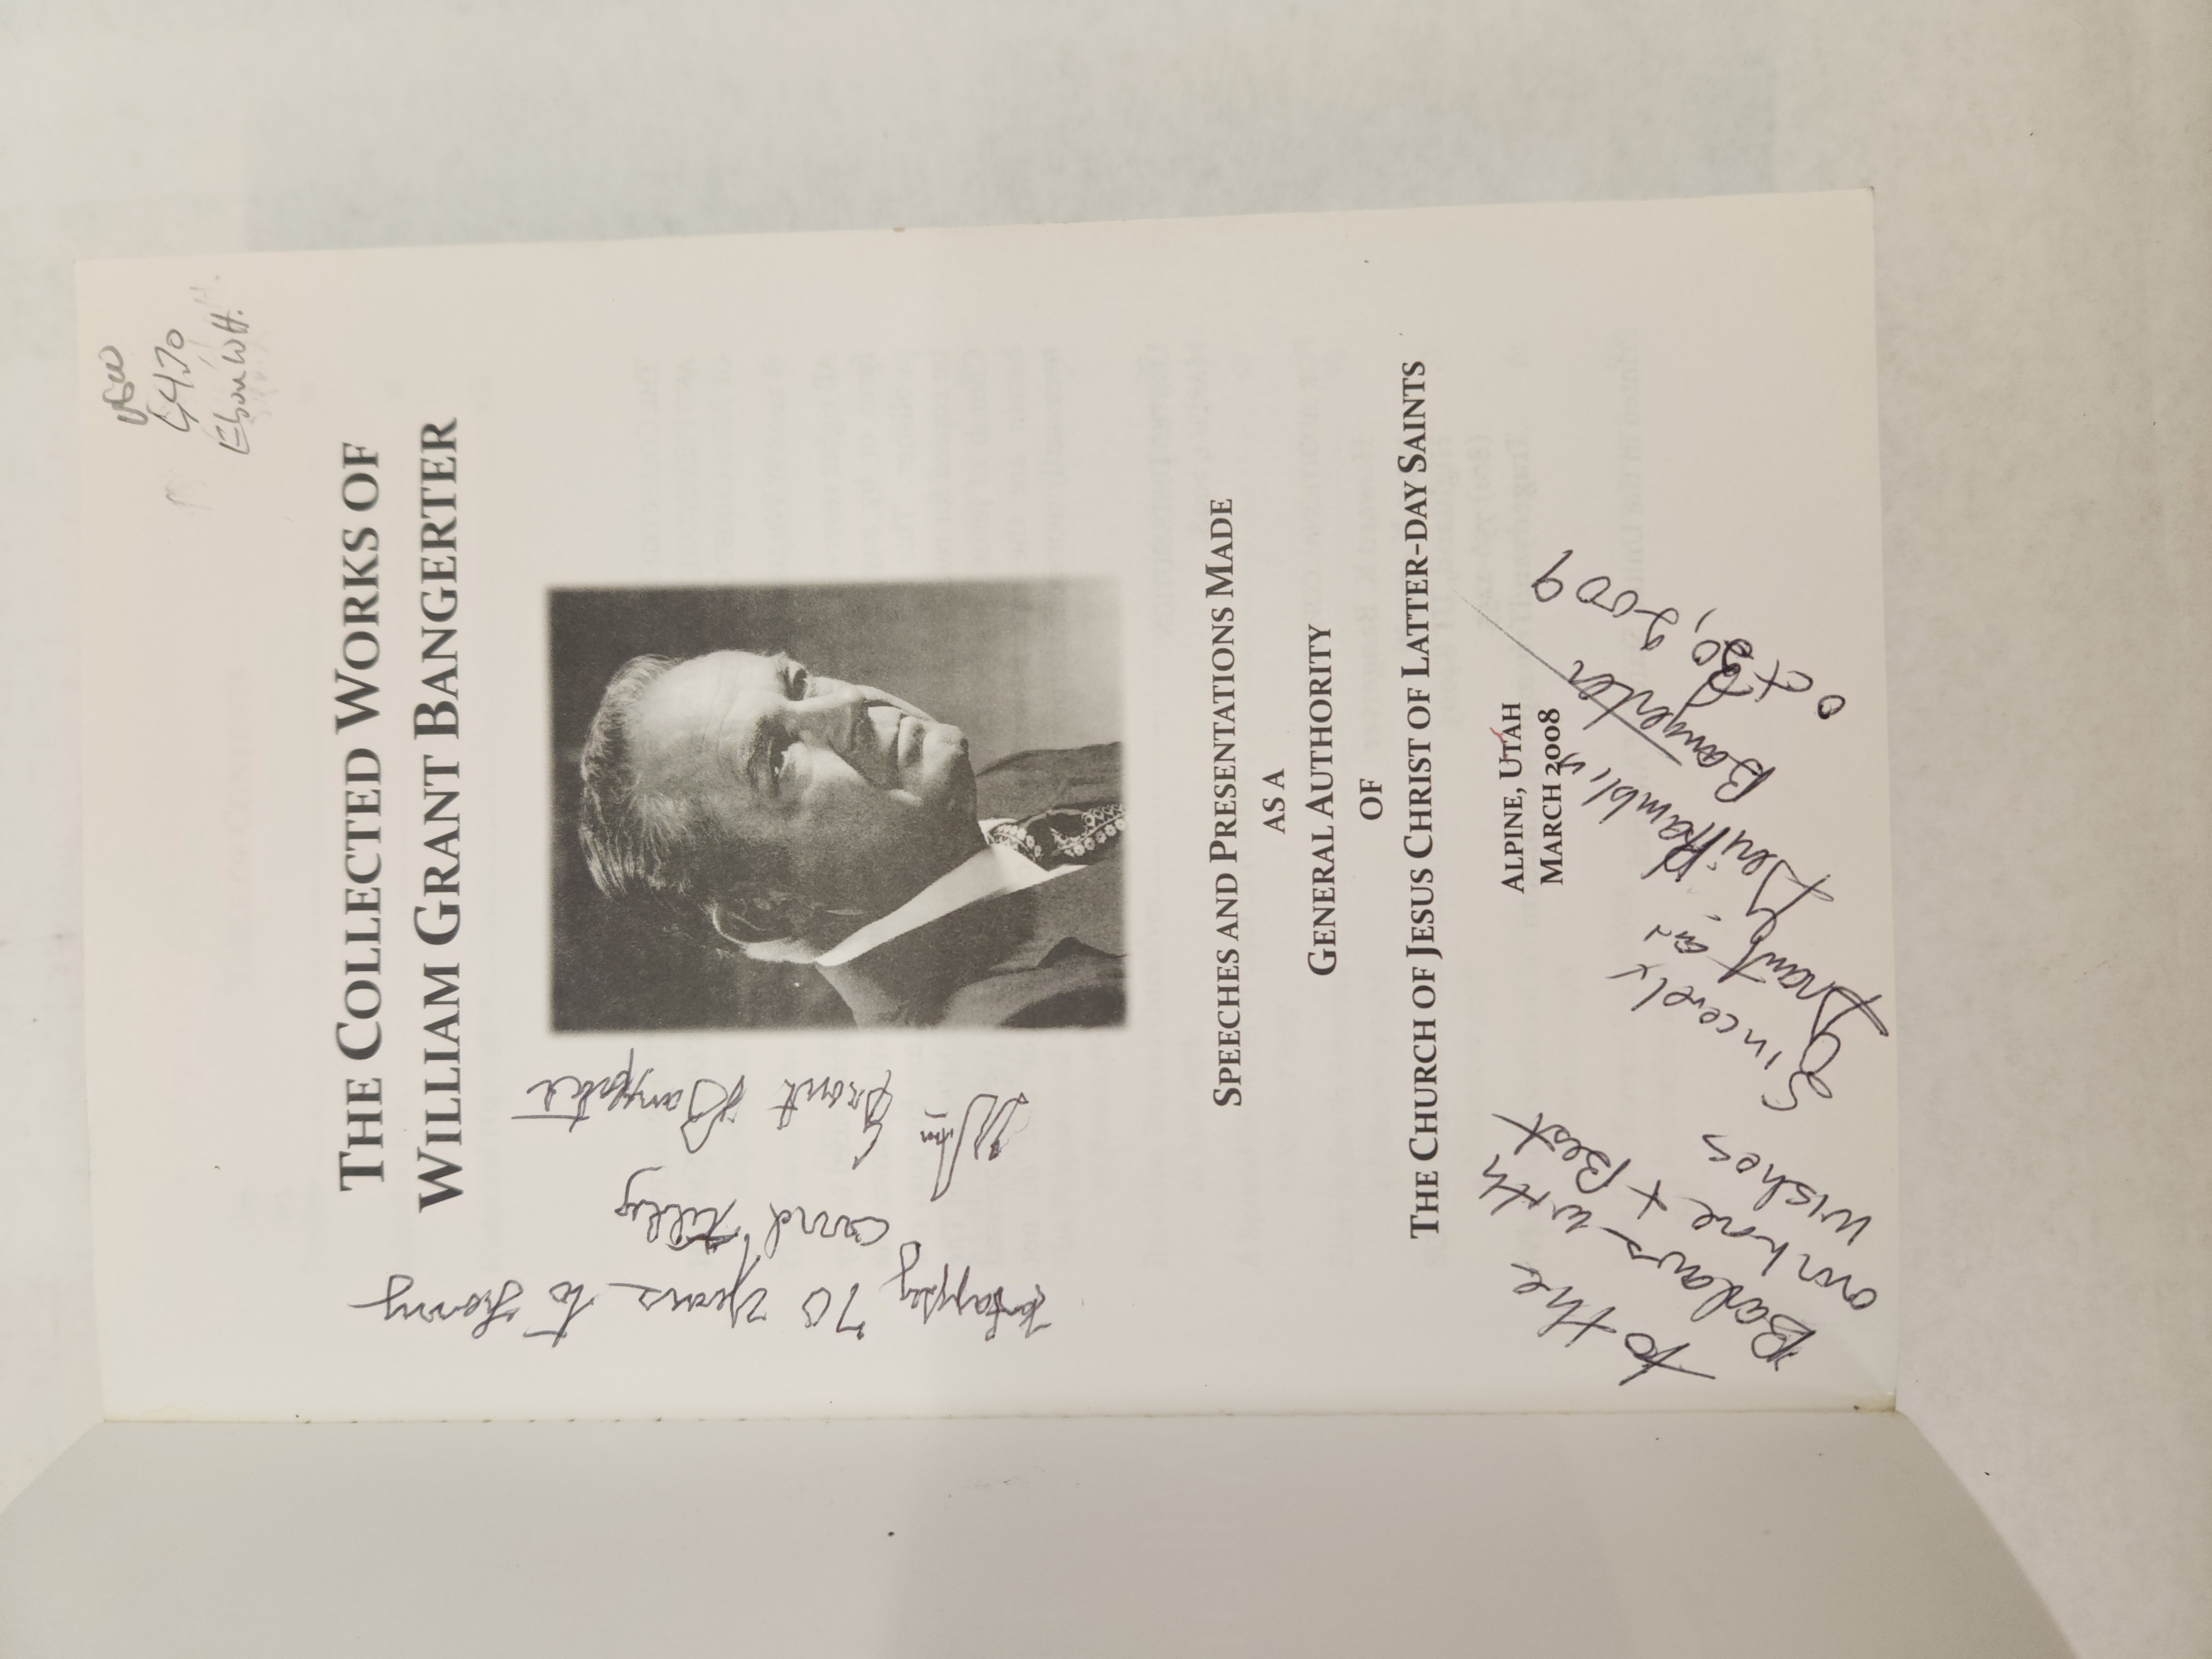 THE COLLECTED WORKS OF
WILLIAM GRANT BANGERTER
Happy
70 years to
and Tilly
Wm Grant Bangerter
SPEECHES AND PRESENTATIONS MADE
AS A
GENERAL AUTHORITY
OF
THE CHURCH OF JESUS CHRIST OF LATTER-DAY SAINTS
ALPINE, UTAH
MARCH 2008
To the
Barlows with
our love + Best
wishes
Sincerely
Grant and
Geri Hamblin
Bangerter
Oct 30, 2009